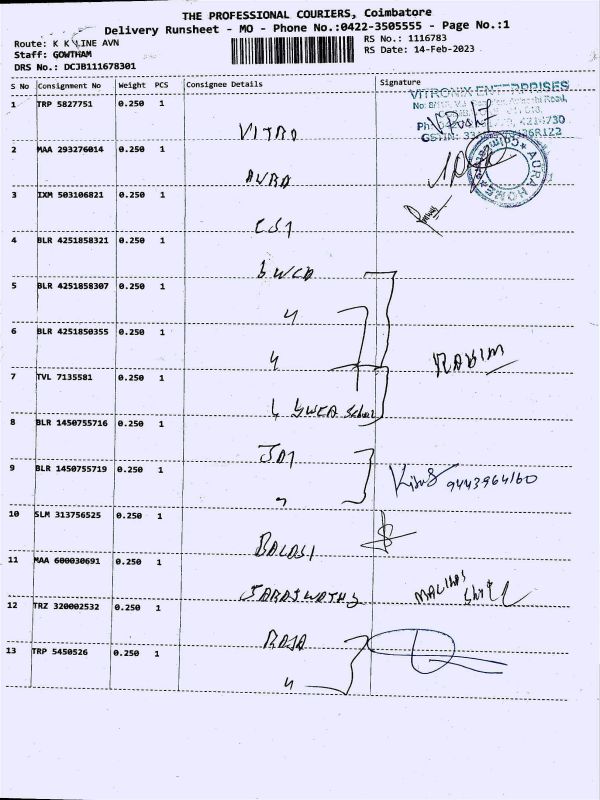 THE PROFESSIONAL COURIERS, Coimbatore
Delivery Runsheet - MO - Phone No.:0422-3505555 - Page No.:1
Route: K K LINE AVN
RS No.: 1116783
Staff: GOWTHAM
RS Date: 14-Feb-2023
DRS No.: DCJB111678301
S No Consignment No Weight PCS Consignee Details Signature
1 TRP 5827751 0.250 1 VITRO
VITRONIX ENTERPRISES
2 MAA 293276014 0.250 1 AURA
AURA HOME
3 IXM 503106821 0.250 1
4 BLR 4251858321 0.250 1
5 BLR 4251858307 0.250 1 "
6 BLR 4251850355 0.250 1 "
RAHIM
7 TVL 7135581 0.250 1
8 BLR 1450755716 0.250 1
9 BLR 1450755719 0.250 1 "
9443964160
10 SLM 313756525 0.250 1 BALAJI
11 MAA 600030691 0.250 1
12 TRZ 320002532 0.250 1 RAJA
13 TRP 5450526 0.250 1 "